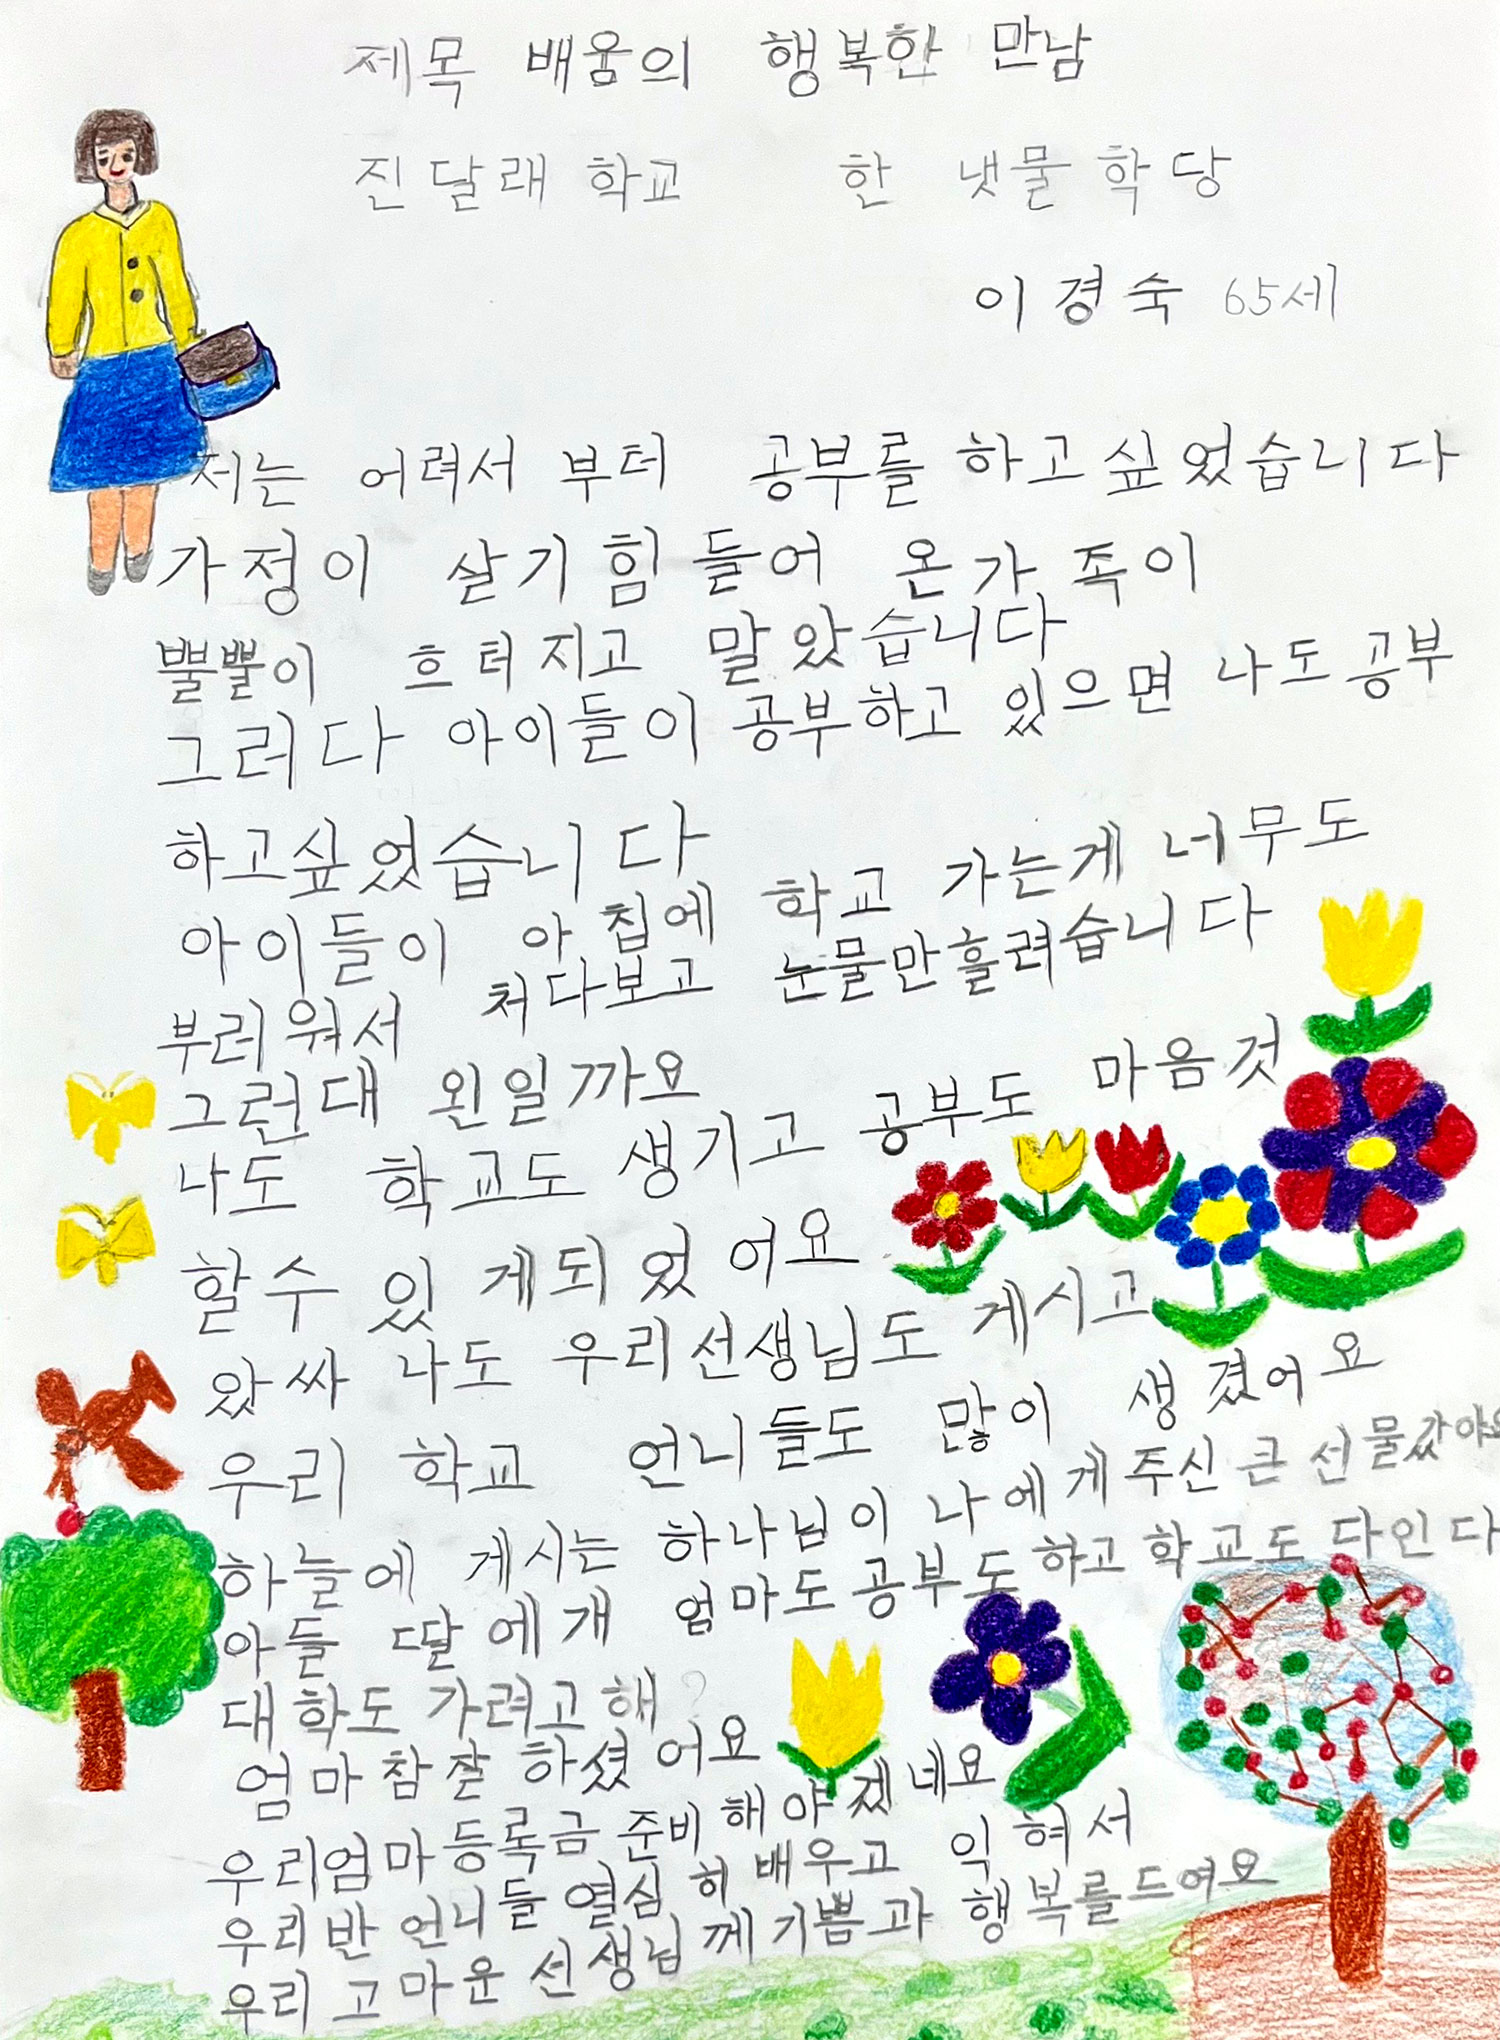 제목 배움의 행복한 만남
진달래 학교 한 냇물 학당
이경숙 65세
저는 어려서 부터 공부를 하고싶었습니다
가정이 살기힘들어 온가족이
뿔뿔이 흐터지고 말았습니다
그러다 아이들이 공부하고 있으면 나도공부
하고싶었습니다
아이들이 아침에 학교 가는게 너무도
부러워서 처다보고 눈물만흘려습니다
그런대 왼일까요
나도 학교도 생기고 공부도 마음것
할수 있게되었어요
았싸 나도 우리선생님도 게시고
우리 학교 언니들도 많이 생겼어요
하늘에 게시는 하나님이 나에게주신 큰 선물갔아요
아들 딸에개 엄마도공부도하고 학교도 다인다
대학도 가려고해?
엄마참잘하셨어요
우리엄마등록금 준비해야겠네요
우리반 언니들 열심히 배우고 익혀서
우리고마운 선생님께기쁨과 행복를드여요